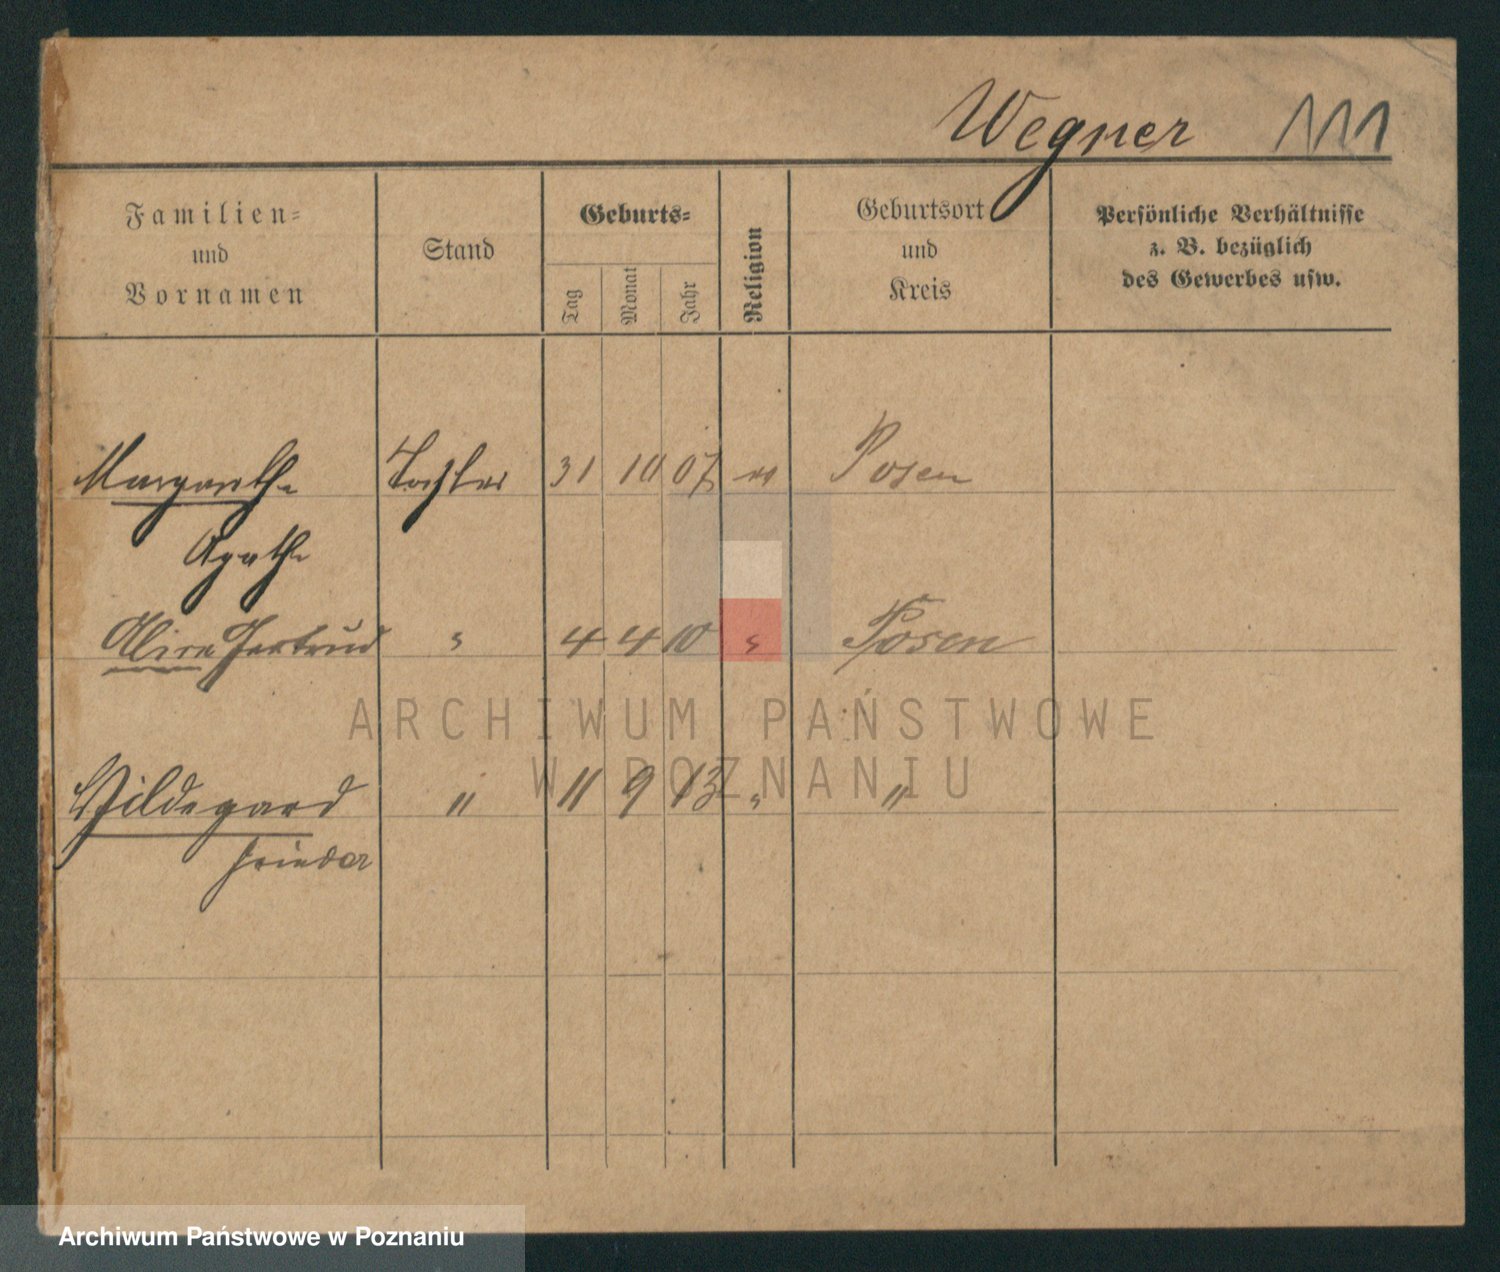 Wegner 111
Familien=
und
Vornamen
Stand
Geburts=
Tag
Monat
Jahr
Religion
Geburtsort
und
Kreis
Persönliche Verhältnisse
z. B. bezüglich
des Gewerbes usw.
Margarethe Tochter 31 10 07 ev Posen
Agathe
Gertrud " 4 4 10 " Posen
Hildegard " 11 9 13 " "
ARCHIWUM PAŃSTWOWE
W POZNANIU
Archiwum Państwowe w Poznaniu